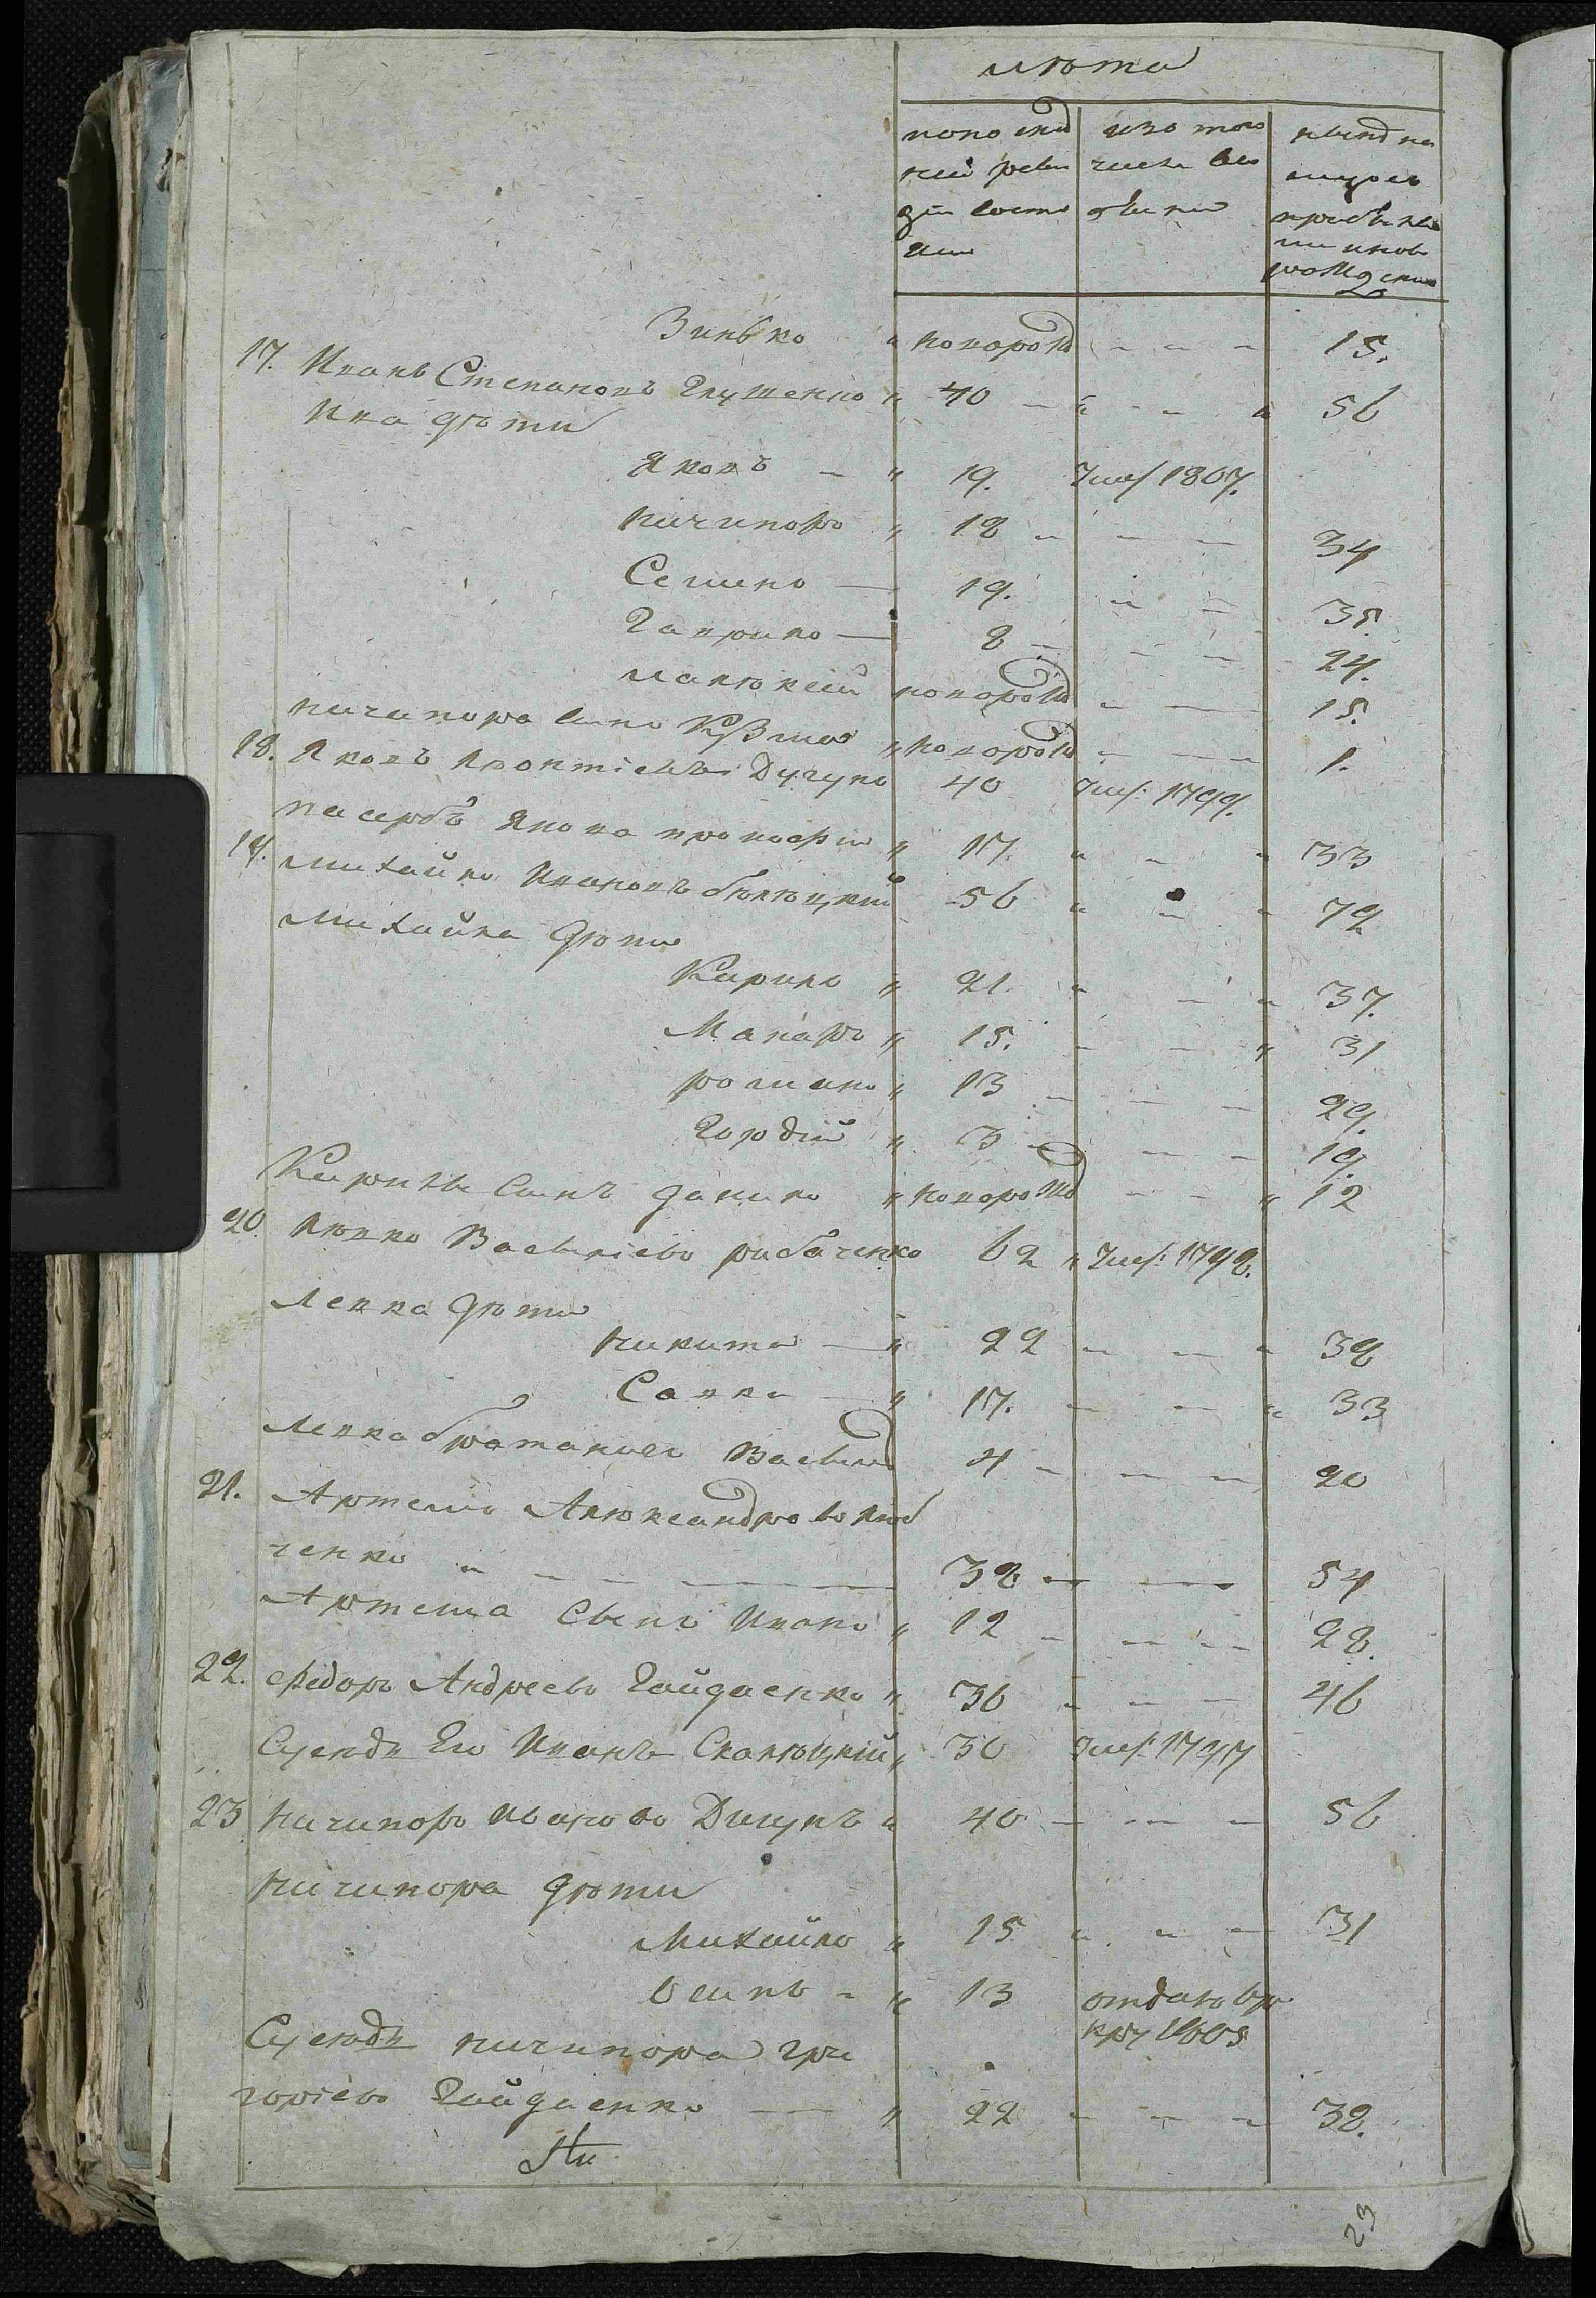 лѣта
по послед
ней реви
зіи состо
яли
изъ того
числа вы
были
нынѣ на
лицо съ
прибылы
ми и нов
рожденн
Зинько " новорожд - - - 15.
17. Иванъ Степановъ Глущенко " 40 - " - - " 56
Ива дѣти
Яковъ - " 19. Умеръ 1807.
Ничипоръ " 18 - - - 34
Семенъ — 19. - - 35.
Гаврило — 8 - - - 24.
Малѣксей новорожд - — 15.
Ничипора сынъ Кузма " новорожд - - - 1.
18. Яковъ Леонтіевъ Дугунъ 40 Умеръ 1799.
пасербъ Якова прокофій " 17. " - " 33
19. Михайло Ивановъ бѣлѣцкій 56 " - " 72
Михайла дѣти
Кирило " 21. " - " 37.
Макаръ " 15. - - " 31
романъ " 13 - - - 29.
Гордій " 3 - - - 19.
Кирилы сынъ данило " новорожд - - " 12
20. Левко Васильевъ рибаченко 62 " Умер: 1798.
Левка дѣти
Никита — " 22 - - " 38
Савка — " 17. - - " 33
Левка братаничъ Василь 4 - - - 20
21. Артемъ Алѣксандровъ
ченко " - - - — 38 - — 54
Артема сынъ Иванъ " 12 - - - 28.
22. Федоръ Андреевъ Гайдаенко " 30 - - - 46
Сусѣдъ Его Иванъ Скалѣцкій " 30 Умер: 1797
23 Ничипоръ Ивановъ Дигунъ " 40 - - - 56
Ничипора дѣти
Михайло " 15 " - - 31
Осипъ - " 13 отданъ врѣ
кру 1805
Сусѣдъ ничипора гри
горіевъ Гайдаенко — " 22 - - - 38.
Ни
23